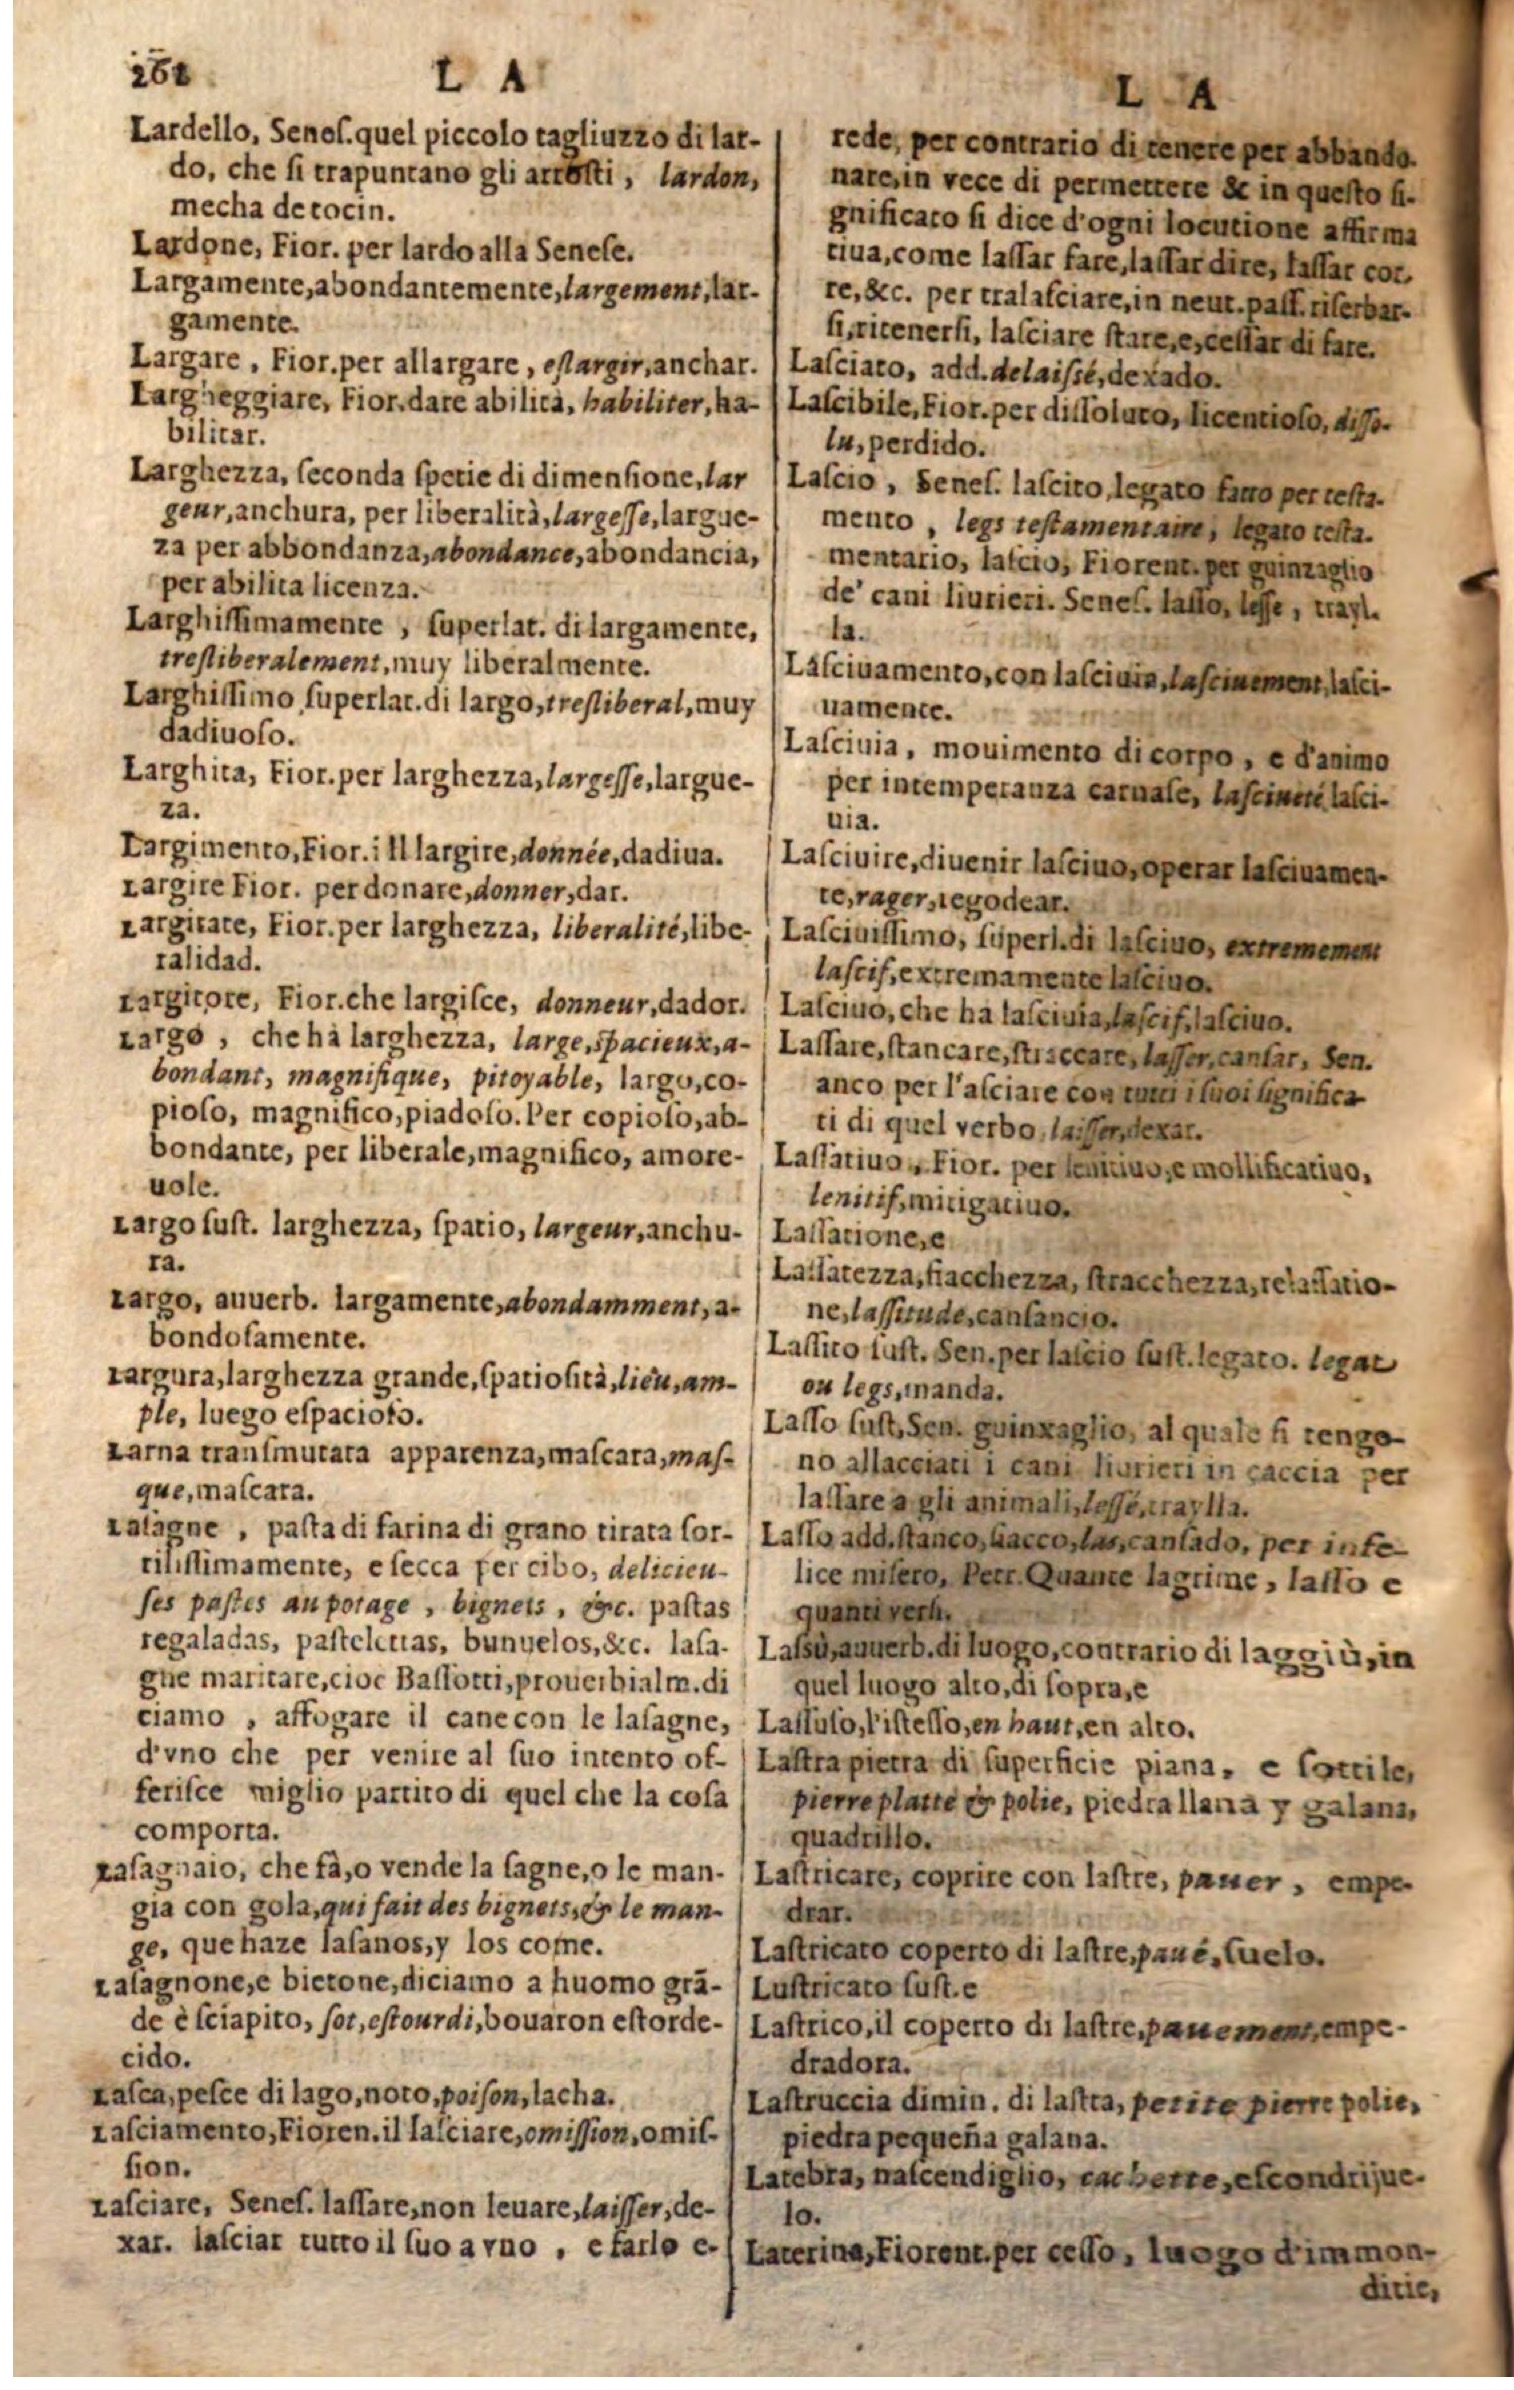 262
L A
Lardello, Senes. quel piccolo tagliuzzo di lar-
do, che si trapuntano gli arrosti, lardon,
mecha de tocin.
Lardone, Fior. per lardo alla Senese.
Largamente, abondantemente, largement, lar-
gamente.
Largare, Fior. per allargare, eslargir, anchar.
Largheggiare, Fior. dare abilità, habiliter, ha-
bilitar.
Larghezza, seconda spetie di dimensione, lar
geur, anchura, per liberalità, largesse, largue-
za per abbondanza, abondance, abondancia,
per abilita licenza.
Larghissimamente, superlat. di largamente,
tresliberalement, muy liberalmente.
Larghissimo superlat. di largo, tresliberal, muy
dadiuoso.
Larghita, Fior. per larghezza, largesse, largue-
za.
Largimento, Fior. i ll largire, donnée, dadiua.
Largire Fior. per donare, donner, dar.
Largitate, Fior. per larghezza, liberalité, libe-
ralidad.
Largitore, Fior. che largisce, donneur, dador.
Largo, che hà larghezza, large, spacieux, a-
bondant, magnifique, pitoyable, largo, co-
pioso, magnifico, piadoso. Per copioso, ab-
bondante, per liberale, magnifico, amore-
uole.
Largo sust. larghezza, spatio, largeur, anchu-
ra.
Largo, auuerb. largamente, abondamment, a-
bondosamente.
Largura, larghezza grande, spatiosità, lieu, am-
ple, luego espacioso.
Larna transmutata apparenza, mascara, mas-
que, mascara.
Lasagne, pasta di farina di grano tirata sot-
tilissimamente, e secca per cibo, delicieu-
ses pastes au potage, bignets, &c. pastas
regaladas, pastelettas, bunuelos, &c. lasa-
gne maritate, cioe Bassotti, prouerbialm. di
ciamo, affogare il cane con le lasagne,
d'vno che per venire al suo intento of-
ferisce miglio partito di quel che la cosa
comporta.
Lasagnaio, che fà, o vende la sagne, o le man-
gia con gola, qui fait des bignets, & le man-
ge, que haze lasanos, y los come.
Lasagnone, e bietone, diciamo a huomo grā-
de è sciapito, sot, estourdi, bouaron estorde-
cido.
Lasca, pesce di lago, noto, poison, lacha.
Lasciamento, Fioren. il lasciare, omission, omis-
sion.
Lasciare, Senes. lassare, non leuare, laisser, de-
xar. lasciar tutto il suo a vno, e farlo e-
L A
rede, per contrario di tenere per abbando-
nare, in vece di permettere & in questo si-
gnificato si dice d'ogni locutione affirma
tiua, come lassar fare, lassar dire, lassar cor-
re, &c. per tralasciare, in neut. pass. riserbar-
si, ritenersi, lasciare stare, e, cessar di fare.
Lasciato, add. delaissé, dexado.
Lascibile, Fior. per dissoluto, licentioso, disso-
lu, perdido.
Lascio, Senes. lascito, legato fatto per testa-
mento, legs testamentaire, legato testa-
mentario, lascio, Fiorent. per guinzaglio
de' cani liurieri. Senes. lasso, lesse, trayl-
la.
Lasciuamento, con lasciuia, lasciuement, lasci-
uamente.
Lasciuia, mouimento di corpo, e d'animo
per intemperanza carnale, lasciueté, lasci-
uia.
Lasciuire, diuenir lasciuo, operar lasciuamen-
te, rager, regodear.
Lasciuissimo, superl. di lasciuo, extremement
lascif, extremamente lasciuo.
Lasciuo, che ha lasciuia, lascif, lasciuo.
Lassare, stancare, straccare, lasser, cansar, Sen.
anco per l'asciare con tutti i suoi significa-
ti di quel verbo, laisser, dexar.
Lassatiuo, Fior. per lenitiuo, e mollificatiuo,
lenitif, mitigatiuo.
Lassatione, e
Lassatezza, fiacchezza, stracchezza, relassatio-
ne, lassitude, cansancio.
Lassito sust. Sen. per lascio sust. legato. legat
ou legs, manda.
Lasso sust. Sen. guinxaglio, al quale si tengo-
no allacciati i cani liurieri in caccia per
lassare a gli animali, lesse, traylla.
Lasso add. stanco, fiacco, las, cansado, per infe-
lice misero, Petr. Quante lagrime, lasso e
quanti versi.
Lassù, auuerb. di luogo, contrario di laggiù, in
quel luogo alto, di sopra, e
Lassuso, l'istesso, en haut, en alto.
Lastra pietra di superficie piana, e sottile,
pierre platte & polie, piedra llana y galana,
quadrillo.
Lastricare, coprire con lastre, pauer, empe-
drar.
Lastricato coperto di lastre, paué, suelo.
Lustricato sust. e
Lastrico, il coperto di lastre, pauement, empe-
dradora.
Lastruccia dimin. di lastra, petite pierre polie,
piedra pequeña galana.
Latebra, nascendiglio, cachette, escondrijue-
lo.
Laterina, Fiorent. per cesso, luogo d'immon-
ditie,